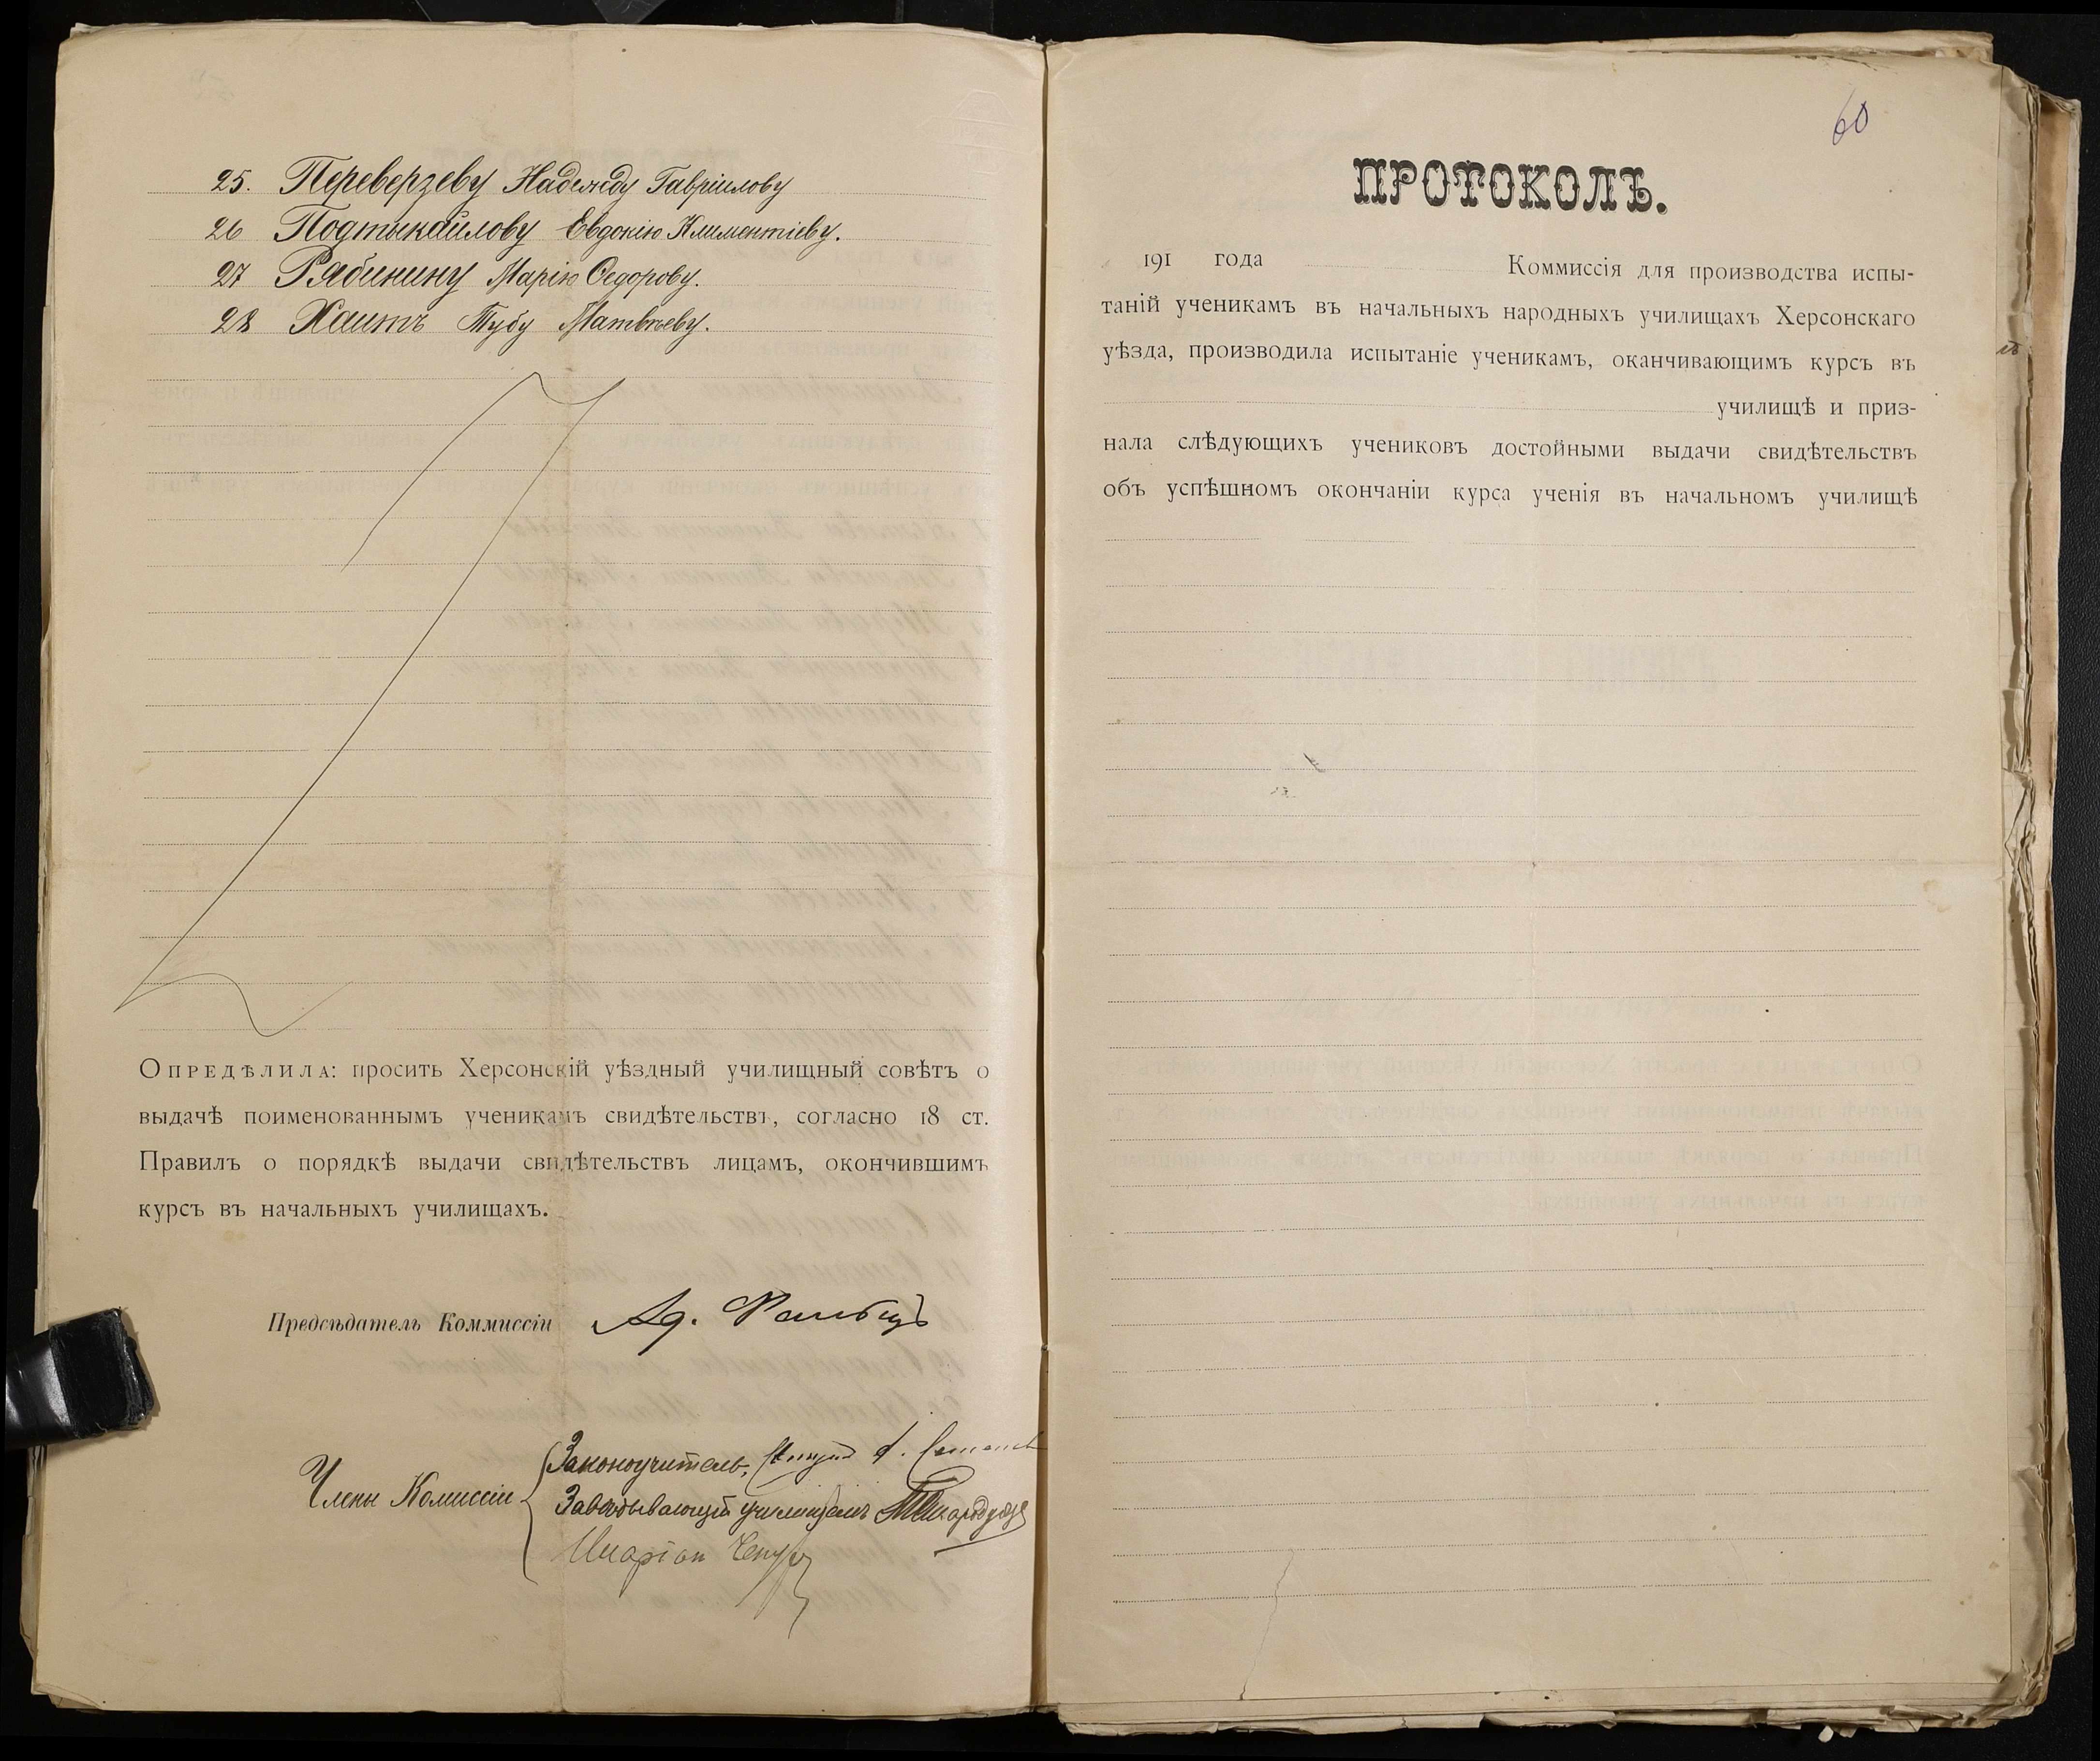 25. Переверзеву Надежду Гавріилову
26 Подтыкайлову Евдокію Климентіеву.
27 Рябинину Марію Ѳедорову.
28 Хаитъ Тубу Матвѣеву.
Опредѣлила: просить Херсонскій уѣздный училищный совѣтъ о
выдачѣ поименованнымъ ученикамъ свидѣтельствъ, согласно 18 ст.
Правилъ о порядкѣ выдачи свидѣтельствъ лицамъ, окончившимъ
курсъ въ начальныхъ училищахъ.
Предсѣдатель Коммиссіи
Члены Комиссіи
Законоучитель,
Завѣдывающій училищемъ
Иларіон
60
ПРОТОКОЛЪ.
191 года Коммиссія для производства испы-
таній ученикамъ въ начальныхъ народныхъ училищахъ Херсонскаго
уѣзда, производила испытаніе ученикамъ, оканчивающимъ курсъ въ
училищѣ и приз-
нала слѣдующихъ учениковъ достойными выдачи свидѣтельствъ
объ успѣшномъ окончаніи курса ученія въ начальномъ училищѣ